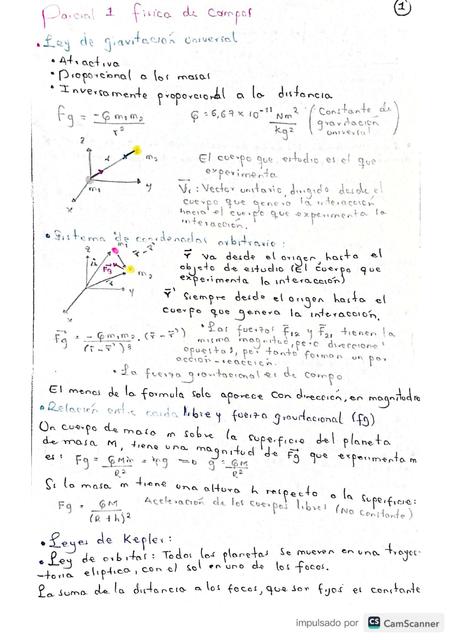 Parcial 1 física de campos
1
• Ley de gravitación universal
• Atractiva
• Proporcional a los masas
• Inversamente proporcional a la distancia
Fg = -G m1 m2 / r²
G = 6,67 x 10⁻¹¹ Nm²/kg² (Constante de gravitación universal)
z
m2
m1
y
x
El cuerpo que estudio es el que
experimenta
Vector unitario, dirigido desde el
cuerpo que genera la interacción
hacia el cuerpo que experimenta la
interacción.
• Sistema de coordenadas arbitrario:
z
m1
r - r'
Fg
m2
y
x
r⃗ va desde el origen, hasta el
objeto de estudio (El cuerpo que
experimenta la interacción)
r⃗' siempre desde el origen hasta el
cuerpo que genera la interacción.
F⃗g = -G m1 m2 / (r⃗ - r⃗')³ · (r⃗ - r⃗')
• Las fuerzas F⃗12 y F⃗21 tienen la
misma magnitud, pero direcciones
opuestas, por tanto forman un par
acción-reacción.
• La fuerza gravitacional es de campo
El menos de la formula solo aparece con dirección, en magnitud no
• Relación entre caida libre y fuerza gravitacional (fg)
Un cuerpo de masa m sobre la superficie del planeta
de masa M, tiene una magnitud de F⃗g que experimenta m
es: Fg = GMm / R² = mg => g = GM / R²
Si la masa m tiene una altura h respecto a la superficie:
Fg = GM / (R + h)²
Aceleración de los cuerpos libres (No constante)
• Leyes de Kepler:
• Ley de orbitas: Todos los planetas se mueven en una trayec-
-toria eliptica, con el sol en uno de los focos.
La suma de la distancia a los focos, que son fijos es constante
impulsado por CS CamScanner